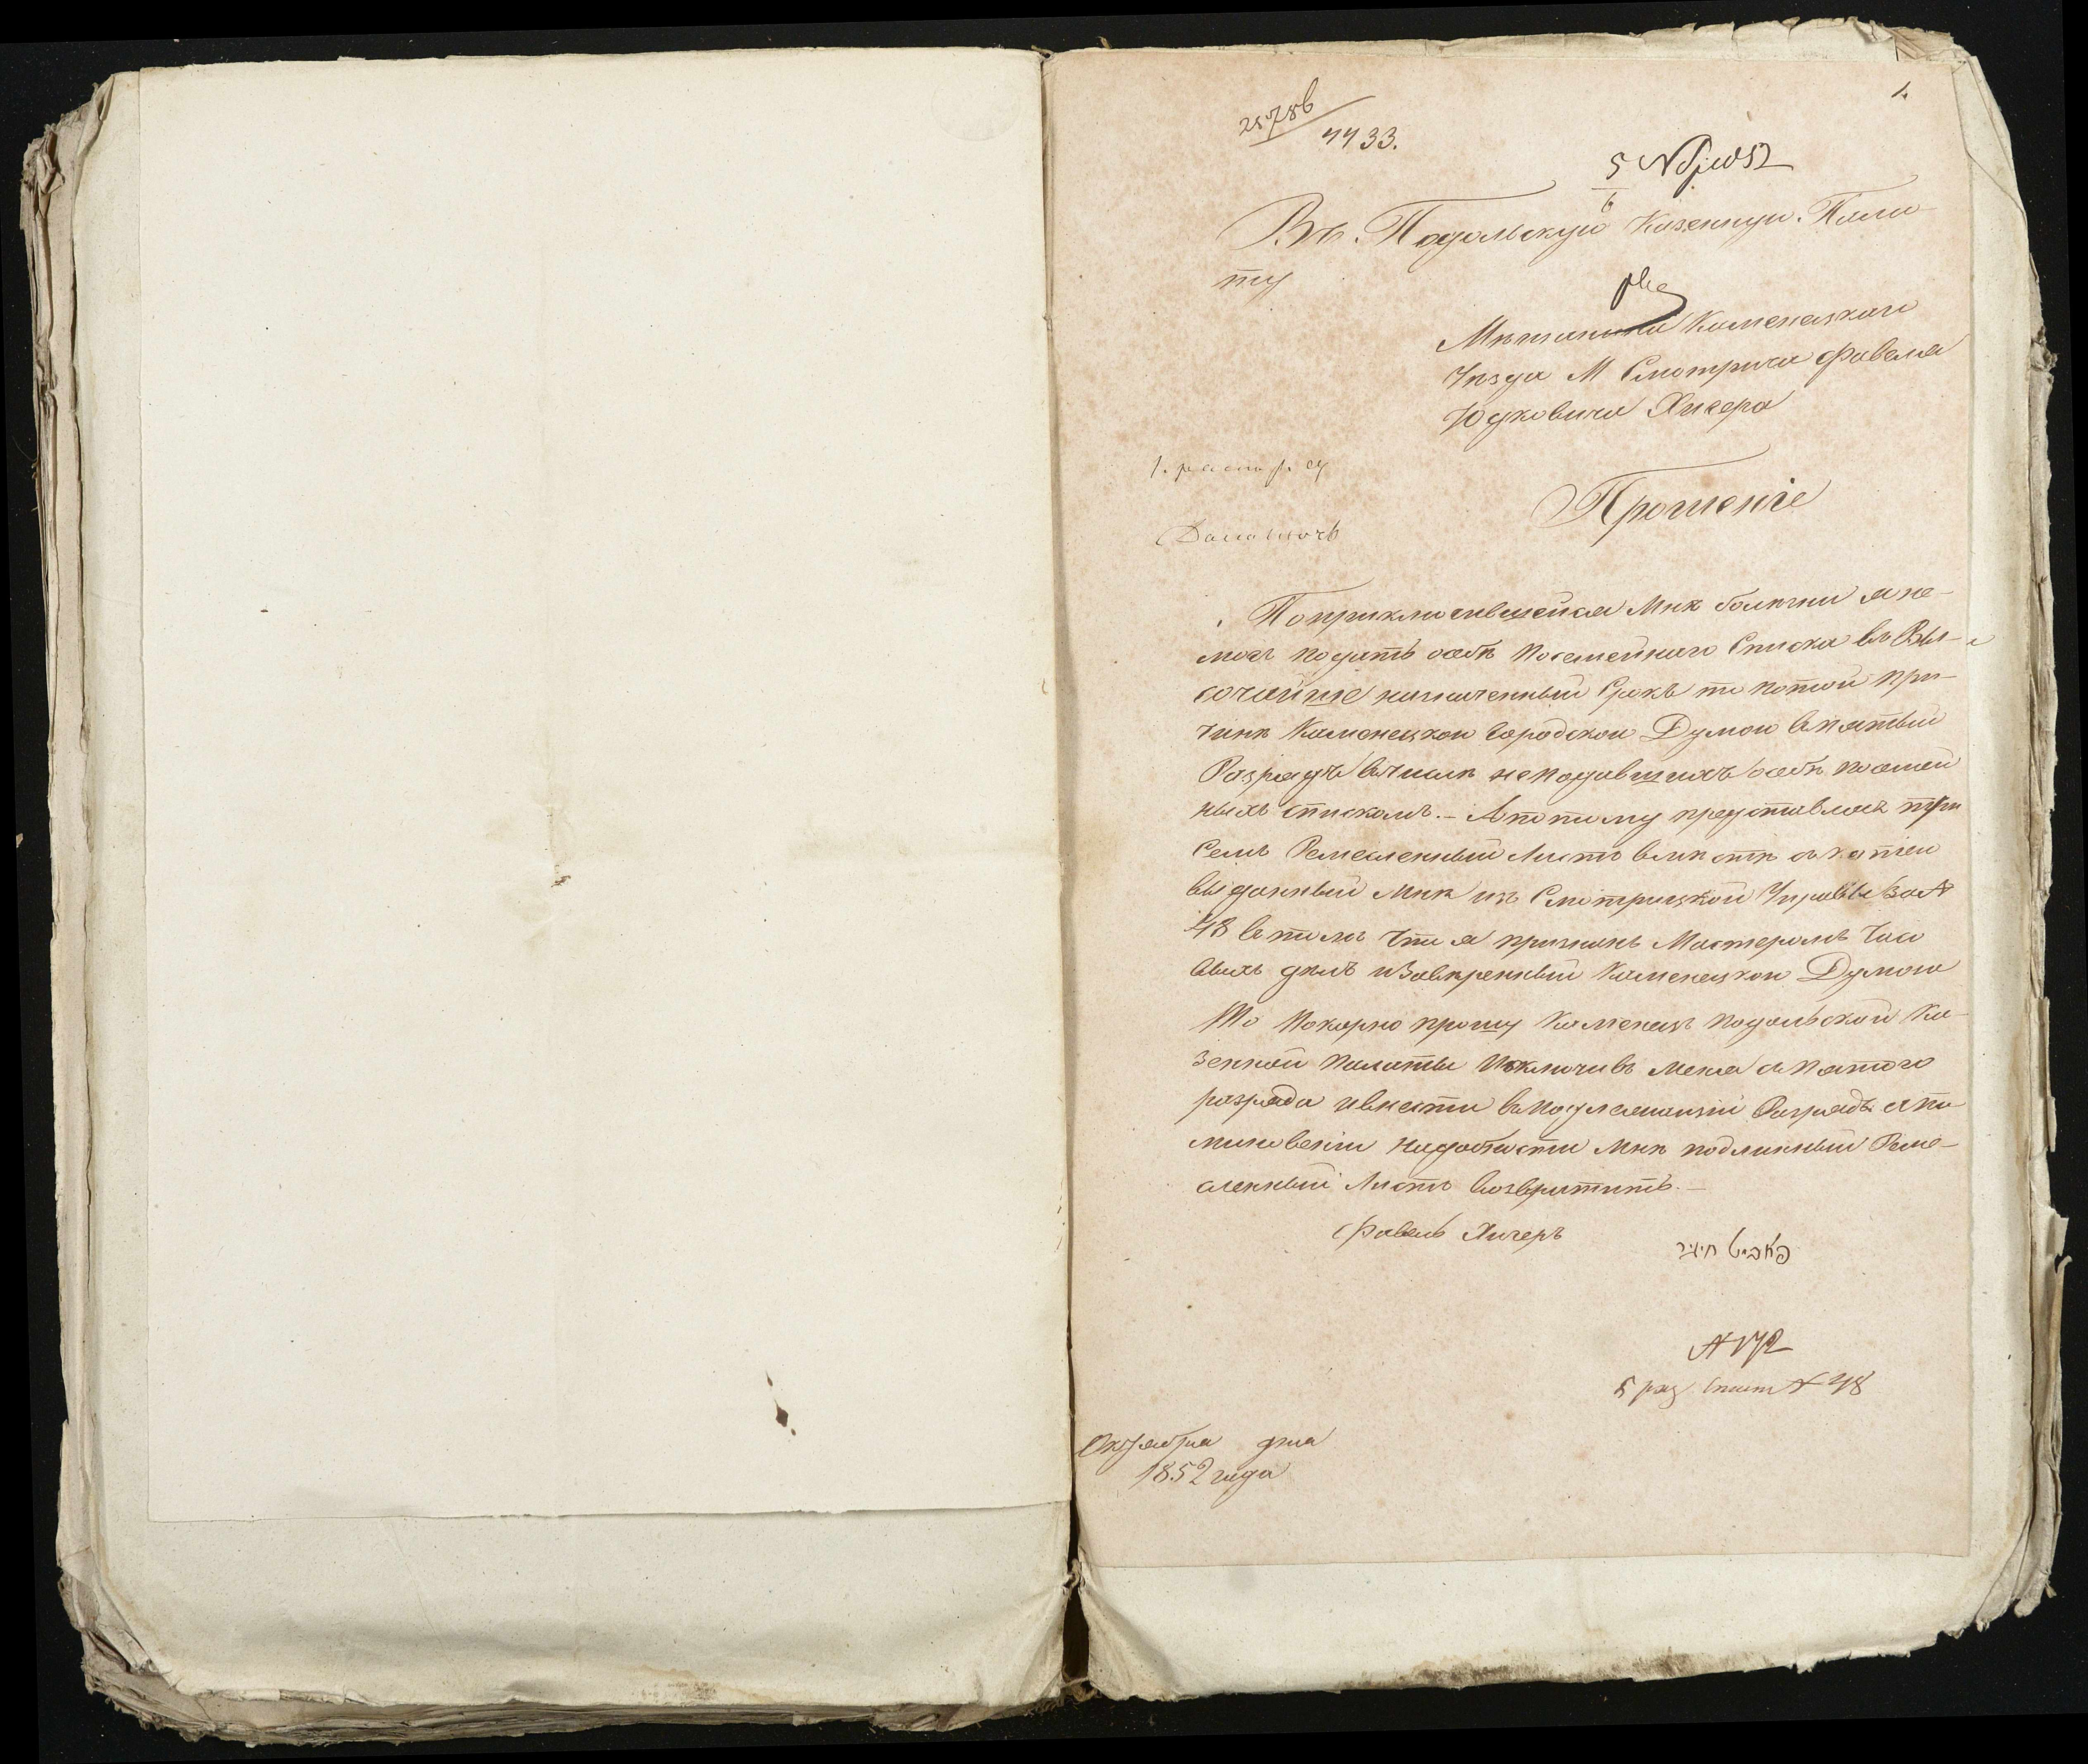 1.
25786
4433.
5 Nбрь 852
6
Въ Подольскую Казенную Пала-
ту
Мѣщанина Каменецкаго
Уѣзда М Смотрича Фавеля
Юдковича Хигера
Прошеніе
По приключившейся мнѣ болѣзни я не-
могъ подать осебѣ посемейнаго Списка въ Вы-
сочайше назначенный Срокъ то потой при-
чинѣ Каменецкой Городской Думой впятый
Разрядъ вчислѣ неподавшихъ осебѣ посемей
ныхъ списковъ.- А потому представляя при
семъ Ремесленный Листъ вмѣстѣ съ копіею
выданный мнѣ изъ Смотрицкой Управы за №
48 втомъ что я признанъ Мастеромъ Часо
выхъ дѣлъ изавѣренный Каменецкою Думою
То Покорно прошу Каменецъ Подольской Ка-
зенной Палаты Исключивъ меня съ пятого
разряда ивнести вподлежащій Разрядъ а по
минованіи надобности мнѣ подлинный Реме-
сленный Листъ возвратить.-
Фавель Хигеръ
פאביל חיגיר
5 раз № 48
Октября дня
1852 года